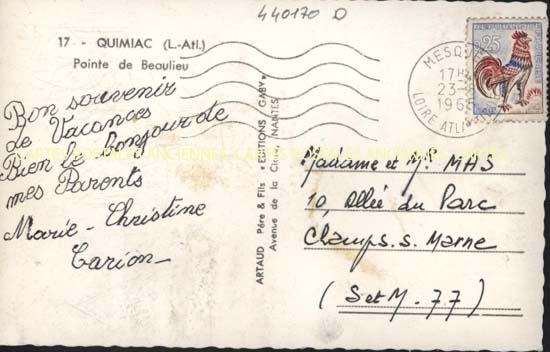 440170 D
17 - QUIMIAC (L.-Atl.)
Pointe de Beaulieu
Bon souvenir
de Vacances
Bien le bonjour de
mes Parents
Marie - Christine
Carion
ARTAUD Père & Fils «EDITIONS GABY»
Avenue de la Close, NANTES
0,25
MESQUER
17H
23-
196
LOIRE ATL
Madame et Mr MAS
10, Allée du Parc
Champs. s. Marne
(S et M. 77)